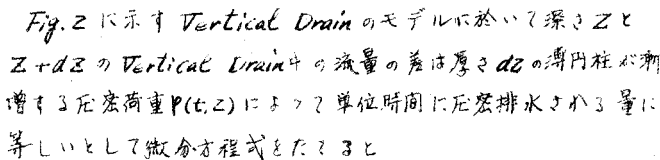 Fig. 2 に示す Vertical Drain のモデルに於いて深さ Z と
Z + dZ の Vertical Drain 中の流量の差は厚さ dZ の薄円柱が漸
増する圧密荷重 P(t, Z) によって単位時間に圧密排水される量に
等しいとして微分方程式をたてると